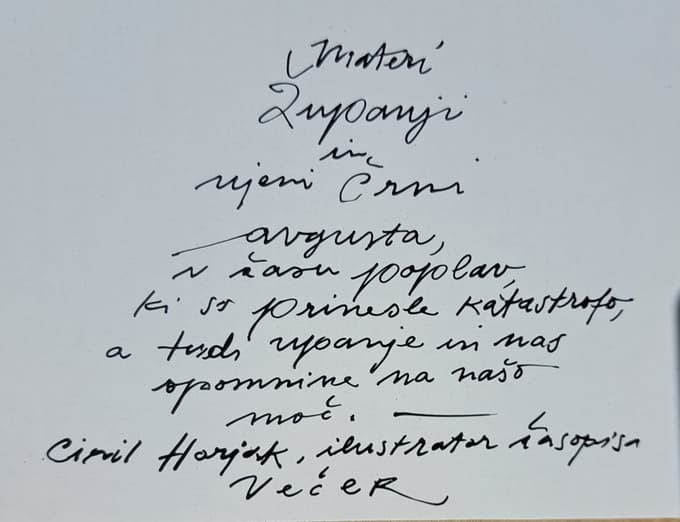 Materi
Županji
in
njeni Črni
avgusta,
v času poplav,
ki so prinesle katastrofo,
a tudi upanje in nas
opomnine na našo
moč. —
Ciril Horjak, ilustrator časopisa
VečeR